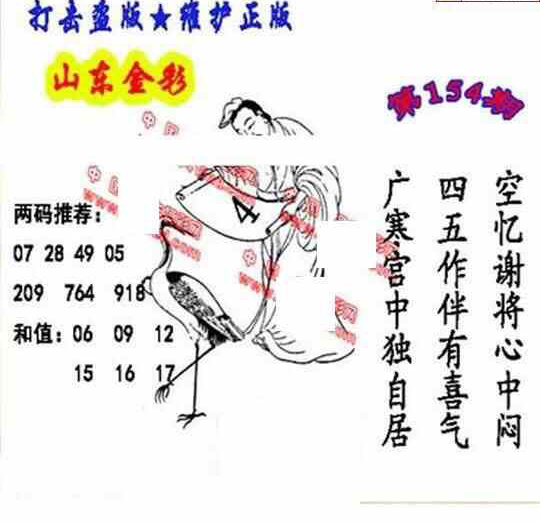 打击盗版★维护正版
山东金彩
第154期
空忆谢将心中闷
四五作伴有喜气
广寒宫中独自居
4
两码推荐：
07 28 49 05
209 764 918
和值：06 09 12
15 16 17